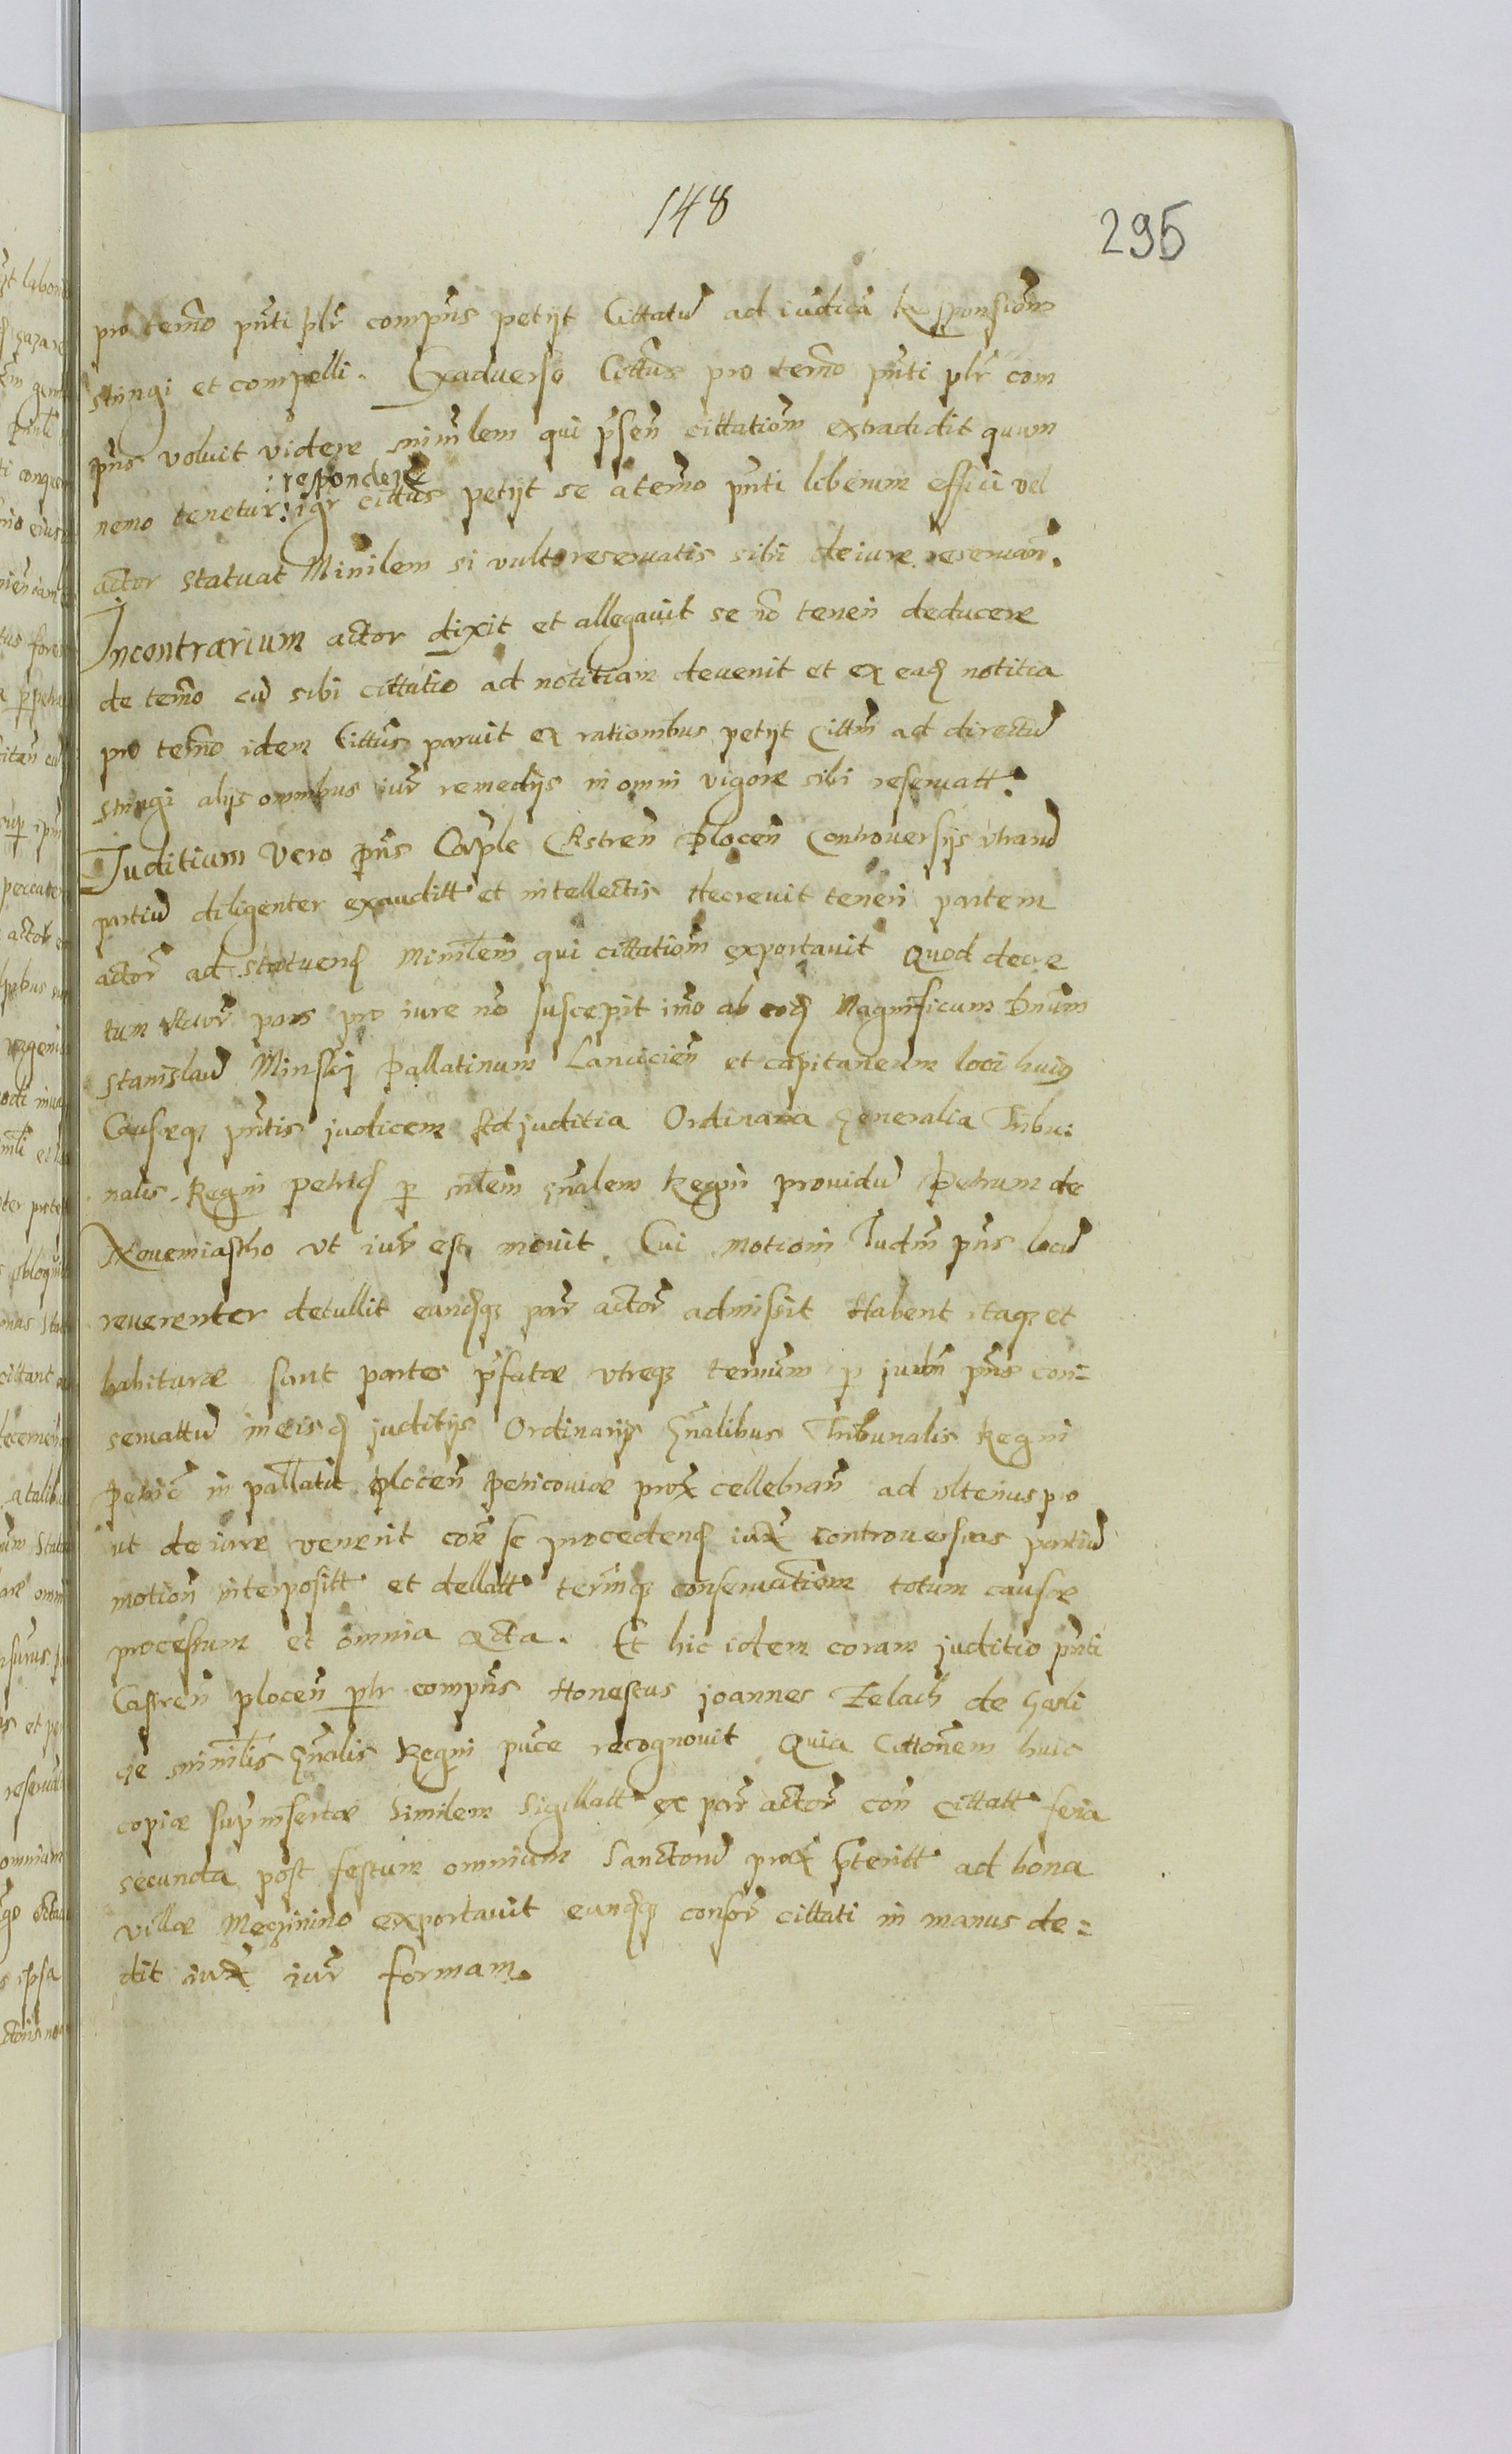 148
295
pro termo pñti plr compñs petijt Cittatũ ad iudicã Responsiom
stringi et compelli. Exaduerso Cittũs pro termo pñti plr com
pñs voluit videre minĩlem qui p̃señ cittatiom̃ extradidit quum
:respondere
nemo tenetur: igr cittũs petijt se a termo pñti liberum effici vel
actor statuat Minilem si vult reseruatis sibi de iure reseruañ.
Incontrarium actor dixit et allegauit se nõ teneri deducere
de termo cũ sibi cittatio ad notitiam deuenit et ex eadꝫ notitia
pro termo idem Cittũs paruit ex rationibus petijt Cittm̃ ad directũ
stringi alijs omnibus iur̃ remedijs in omni vigore sibi reseruatt.
Iuditium Vero pñs Cap̃le Castreñ Plocen̄ Controuersijs vtrarũ
partiũ diligenter exauditt et intellectis decreuit teneri partem
actor̃ ad statuendꝫ Minĩlem qui cittatiom̃ exportauit Quod decre
tum Actor̃ pars pro iure nõ suscepit imo ab eodꝫ Magnificum Dnũm
Stanislaũ Minskij Pallatinum Lancicieñ et capitaneum loci huiꝯ
Causæqꝫ pñtis judicem Ad juditia Ordinaria Generalia Tribu:
nalis Regni petrkꝫ p mlem gñalem Regni prouidũ Petrum de
Nouemiastho vt iur̃ est mouit Cui motioni Iudm̃ pñs locũ
reuerenter detullit eandꝫqꝫ par̃ actor̃ admissit Habent itaqꝫ et
habituræ sunt partes p̃fatæ vtreqꝫ termum p judm̃ pñs con=
seruattũ in eisdꝫ juditijs Ordinarijs Gñalibus Tribunalis Regni
Petric̃ in pallatit̃ Ploceñ Petricouiæ prox̃ cellebrañ ad vlterius pro
ut de iure venerit cor̃ se procedendꝫ iux̃ controuersias partiũ
motion̄ interpositt et dellatt term̃qꝫ conseruatiom̃ totum causæ
processum et omnia acta. Et hic idem coram juditio pñti
Castreñ Ploceñ plr compñs Honestus joannes Zelach de Garli
ce minĩlis Gñalis Regni puc̃e recognouit Quia Cittonem huic
copiæ sup̃insertæ Similem Sigillatt ex par̃ actor̃ coñ Cittatt feria
secunda post festum omnium Sanctorũ prox̃ p̃teritt ad bona
villæ Meczinino exportauit eandꝫqꝫ consor̃ cittati in manus de=
dit iux̃ iur̃ formam.